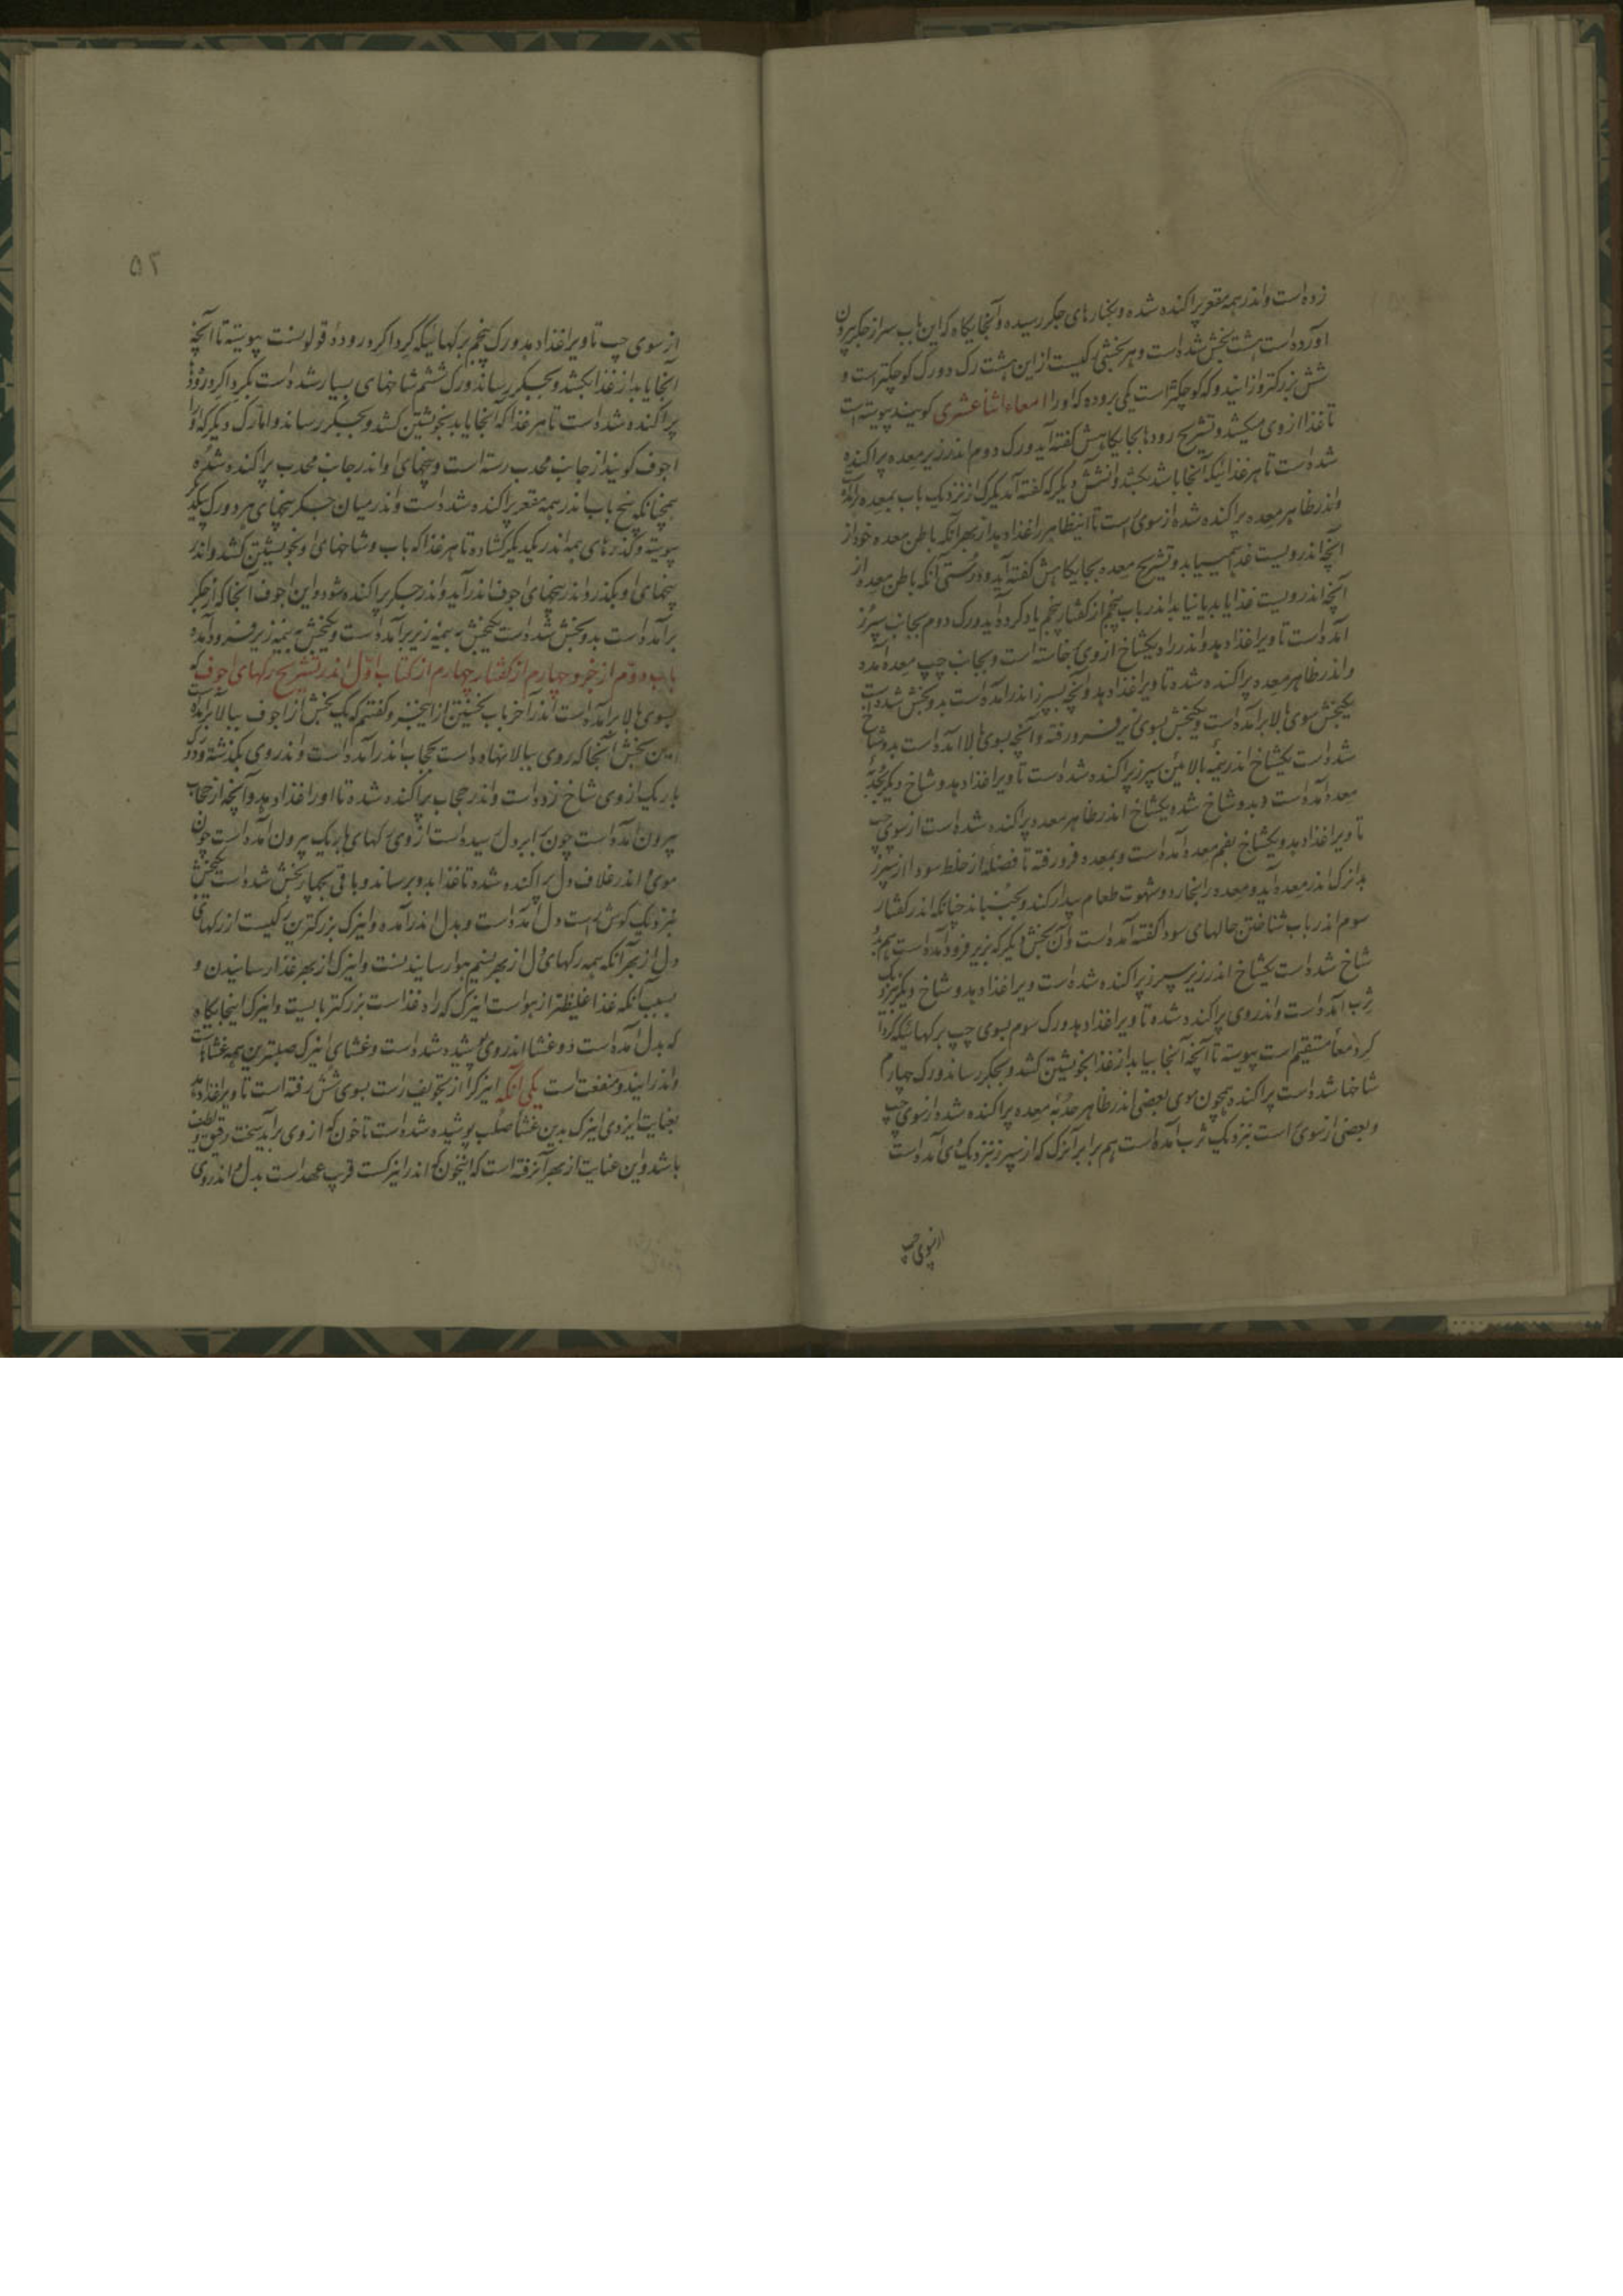 زده است و اندر همه مقعر پراکنده شده و بخنارهای جکر رسیده و آنجایکاه که این باب سر از جکر بیرون
آورده است بهشت بخش شده است و هر بخشی رکیست از این هشت رک دو رک کوچکتر است و
شش بزرکتر و از ایندو رک کوچکتر است یکی بروده که اورا امعاء اثنا عشری کویند پیوسته است
تا غذا از وی میکشد و تشریح رودها بجایکاهش کفته آید و رک دوم اندر زیر معده پراکنده
شده است تا هر غذائیکه آنجا باشد بکشد و از شش دیکر که کفته آمد یکرک از نزدیک باب بمعده برآمده
و اندر ظاهر معده پراکنده شده از سوی راست تا این ظاهر را غذا دهد از بهر آنکه باطن معده خود از
آنچه اندرویست غذا همییابد و تشریح معده بجایکاهش کفته آید و درستی آنکه باطن معده از
آنچه اندرویست غذا یابد یا نیابد اندر باب پنجم از کفتار پنجم یاد کرده آید و رک دوم بجانب سپرز
آمده است تا ویرا غذا دهد و اندر راه یکشاخ از وی خاسته است و بجانب چپ معده آمده
و اندر ظاهر معده پراکنده شده تا ویرا غذا دهد و آنچه بسپرز اندر آمده است بدو بخش شده است
یکبخش سوی بالا برآمده است و یکبخش بسوی زیر فرو رفته و آنچه بسوی بالا آمده است بدو شاخ
شده است یکشاخ اندر نیمه بالائین سپرز پراکنده شده است تا ویرا غذا دهد و شاخ دیکر بحدبه
معده آمده است و بدو شاخ شده یکشاخ اندر ظاهر معده پراکنده شده است از سوی چپ
تا ویرا غذا دهد و یکشاخ بفم معده آمده است و بمعده فرو رفته تا فضله از خلط سودا از سپرز
بدانرک اندر معده آید و معده را بخارد و شهوت طعام بیدار کند و بجنباند چنانکه اندر کفتار
سوم اندر باب شناختن حالهای سودا کفته آمده است و آن بخش دیکر که بزیر فرود آمده است هم بدو
شاخ شده است یکشاخ اندر زیر سپرز پراکنده شده است ویرا غذا دهد و شاخ دیکر بنزدیک
ثرب آمده است و اندر وی پراکنده شده تا ویرا غذا دهد و رک سوم بسوی چپ برکهائیکه کردا
کرد معاء مستقیم است پیوسته تا آنچه آنجا بیابد از غذا بخویشتن کشد و بجکر رساند و رک چهارم
شاخها شده است پراکنده همچون موی بعضی اندر ظاهر حدبه معده پراکنده شده از سوی چپ
و بعضی از سوی راست بنزدیک ثرب آمده است هم برابر آنرک که از سپرز بنزدیک وی آمده است
از سوی چپ
۵۲
از سوی چپ تا ویرا غذا دهد و رک پنجم برکهائیکه کرداکرد روده قولونست پیوسته تا آنچه
آنجا یابد از غذا بکشد و بجکر رساند و رک ششم شاخهای بسیار شده است بکرداکرد روده
پراکنده شده است تا هر غذا که آنجا یابد بخویشتن کشد و بجکر رساند و اما رک دیکر که او را
اجوف کویند از جانب محدب رسته است و بیخهای او اندر جانب محدب پراکنده شده
همچنانکه بیخ باب اندر همه مقعر پراکنده شده است و اندر میان جکر بیخهای هر دو رک بیکدیکر
پیوسته و کذرهای همه اندر یکدیکر کشاده تا هر غذا که باب و شاخهای او بخویشتن کشد و اندر
بیخهای او بکذرد اندر بیخهای اجوف اندر آید و اندر جکر پراکنده شود و این اجوف آنجا که از جکر
برآمده است بدو بخش شده است یکبخش به نیمه زبر برآمده است و یکبخش به نیمه زیر فرود آمده
باب دوم از جزو چهارم از کفتار چهارم از کتاب اول اندر تشریح رکهای اجوف که
بسوی بالا برآمده است اندر آخر باب نخستین از این جزو کفتیم که یک بخش از اجوف ببالا برآمده است
این بخش آنجا که روی ببالا نهاده است بحجاب اندر آمده است و اندر وی بکذشته و دو رک
باریک از وی شاخ زده است و اندر حجاب پراکنده شده تا او را غذا دهد و آنچه از حجاب
بیرون آمده است چون برابر دل رسیده است از وی رکهای باریک بیرون آمده است چون
موی و اندر غلاف دل پراکنده شده تا غذا بدو برساند و باقی بچهار بخش شده است یکبخش
بنزدیک کوش راست دل آمده است و بدل اندر آمده و اینرک بزرکترین رکیست از رکهای
دل از بهر آنکه همه رکهای دل از بهر نسیم هوا رسانیدنست و اینرک از بهر غذا رسانیدن و
بسبب آنکه غذا غلیظتر از هواست اینرک که راه غذاست بزرکتر بایست و اینرک اینجایکاه
که بدل آمده است دو غشا اندر وی پوشیده شده است و غشای اینرک صلبترین همه غشاهاست
و اندر ایندو منفعت است یکی آنکه اینرک را از تجویف راست بسوی شش رفته است تا ویرا غذا دهد
بعنایت ایزدی اینرک بدین غشا صلب پوشیده شده است تا خون که از وی برآید سخت رقیق و لطیف
باشد و این عنایت از بهر آنرفته است که اینخون که اندر اینرکست قریب عهد است بدل و اندر وی